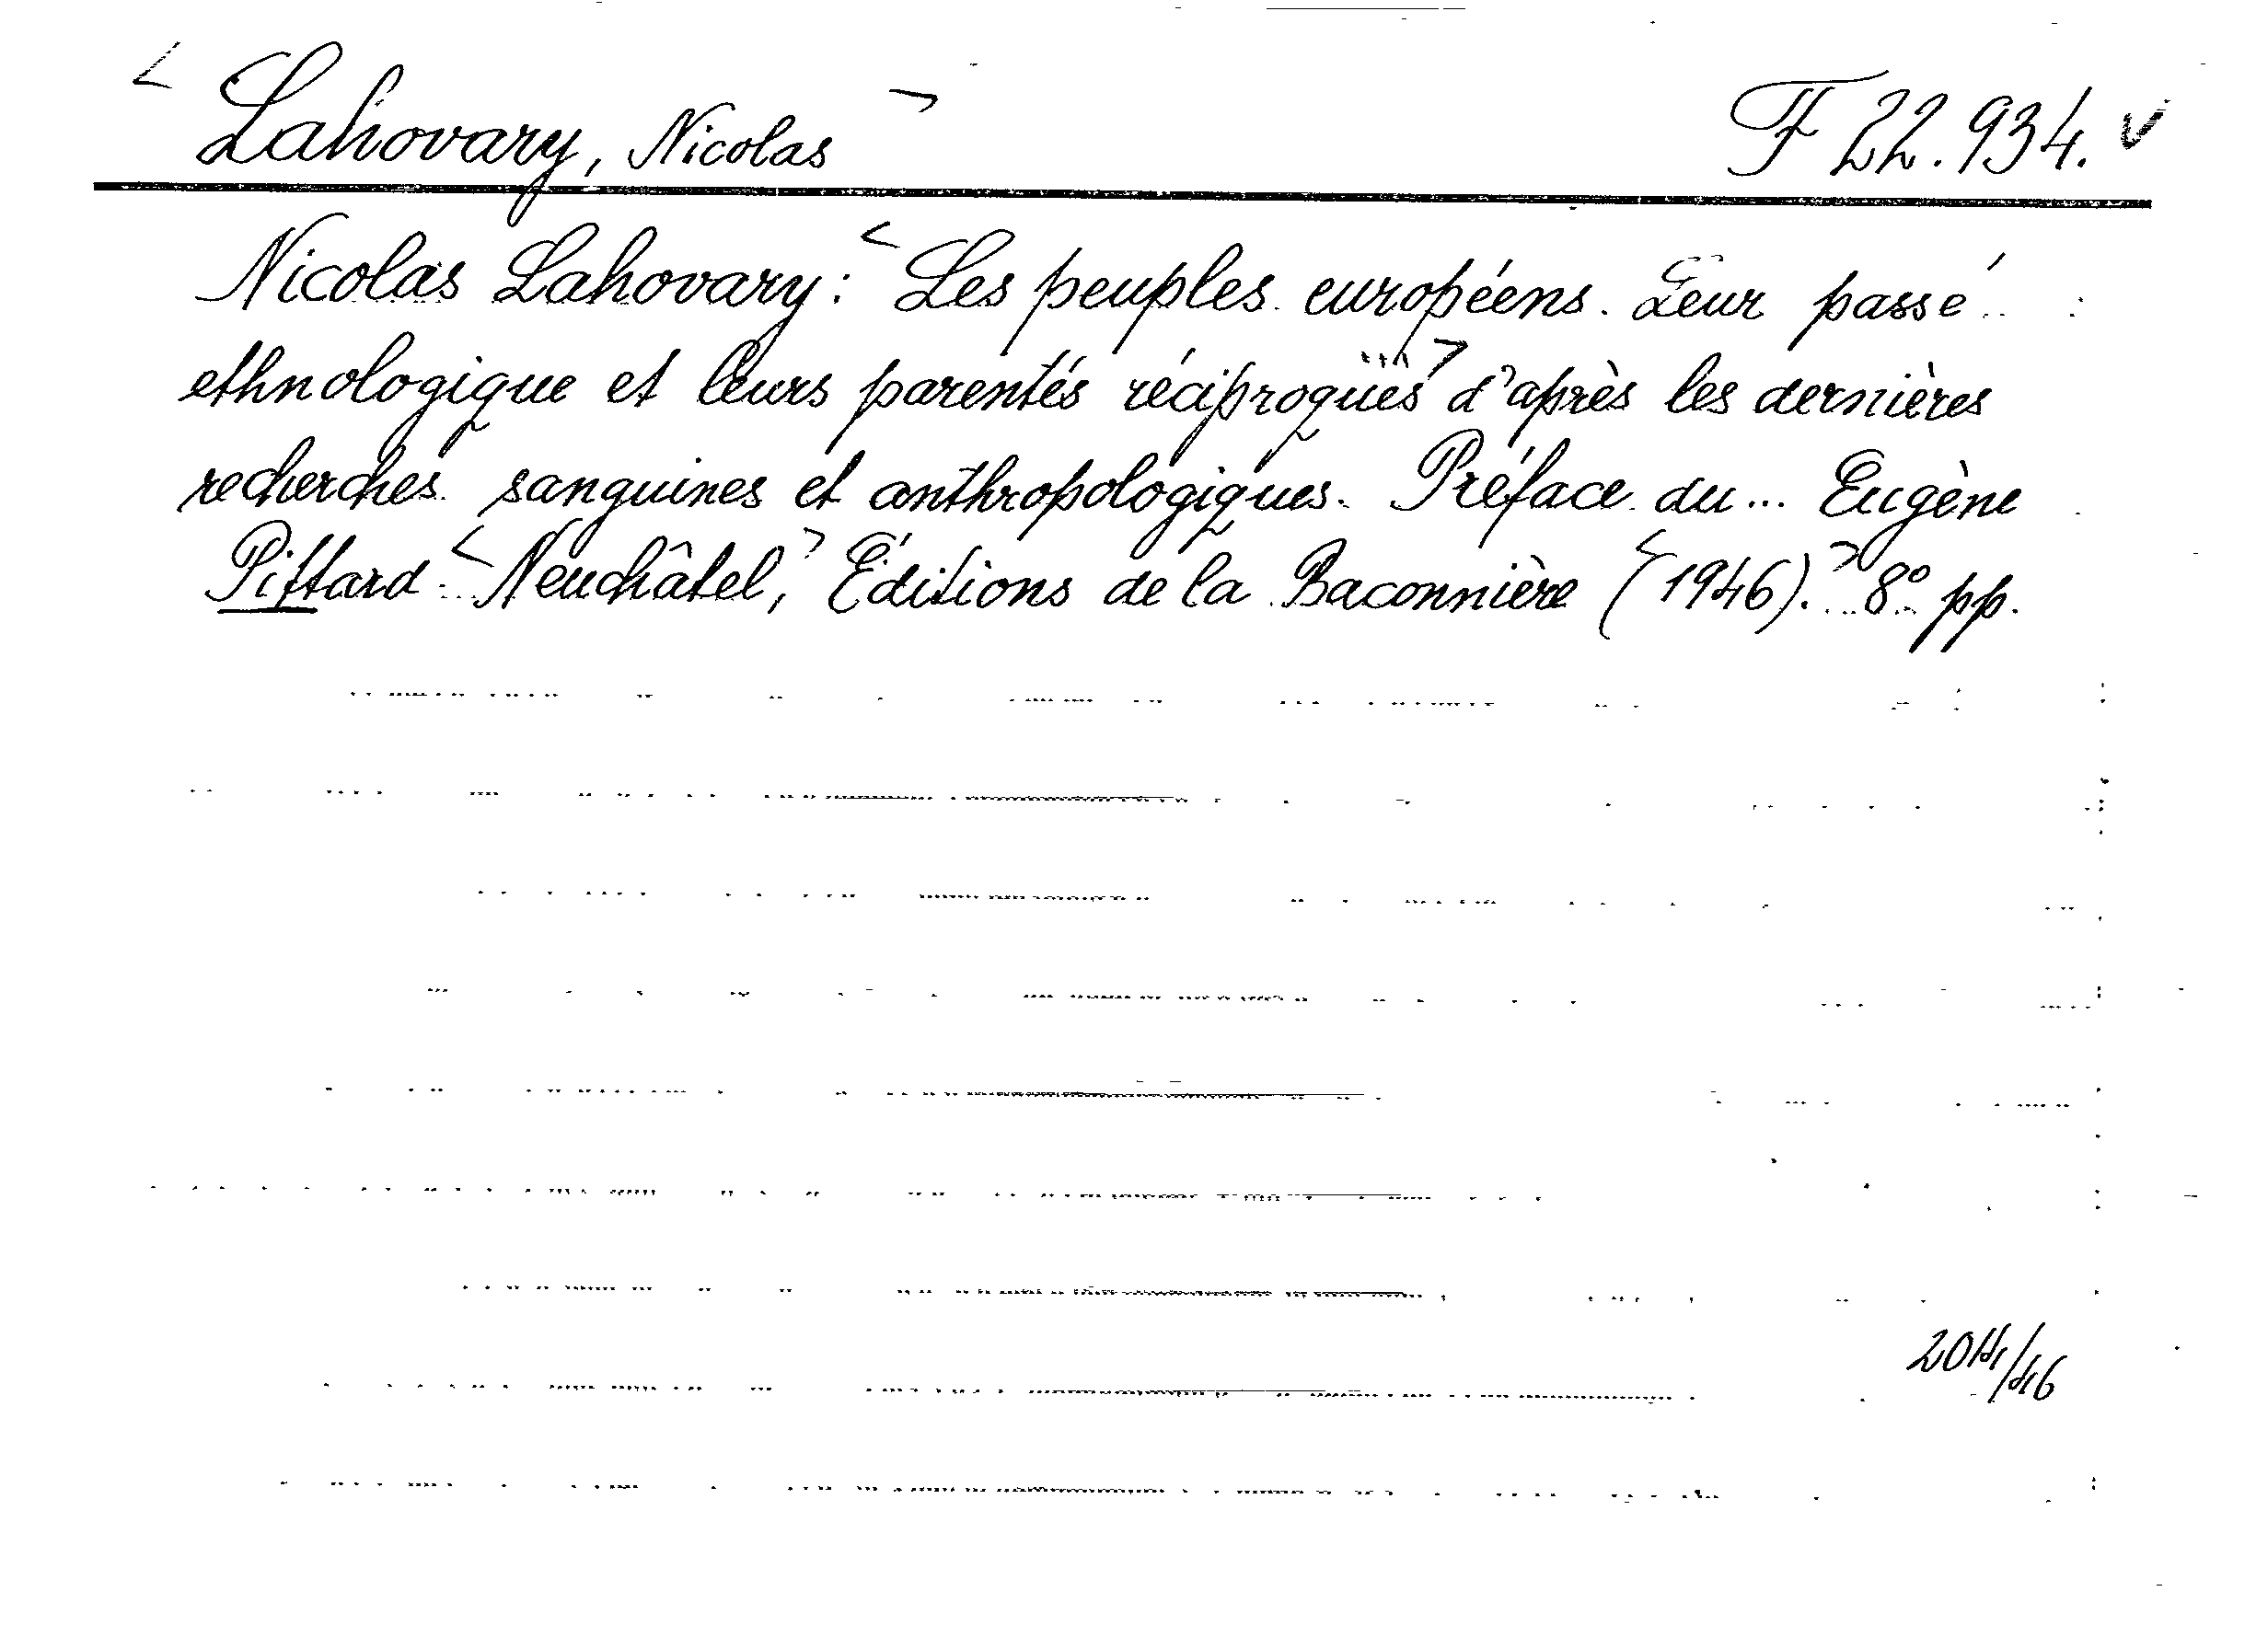 < Lahovary, Nicolas > F 22.934. v
Nicolas Lahovary: < Les peuples européens. Leur passé
ethnologique et leurs parentés réciproques > d'après les dernières
recherches sanguines et anthropologiques. Préface du ... Eugène
Pittard. < Neuchâtel, > Éditions de la Baconnière < (1946). > 8° pp.